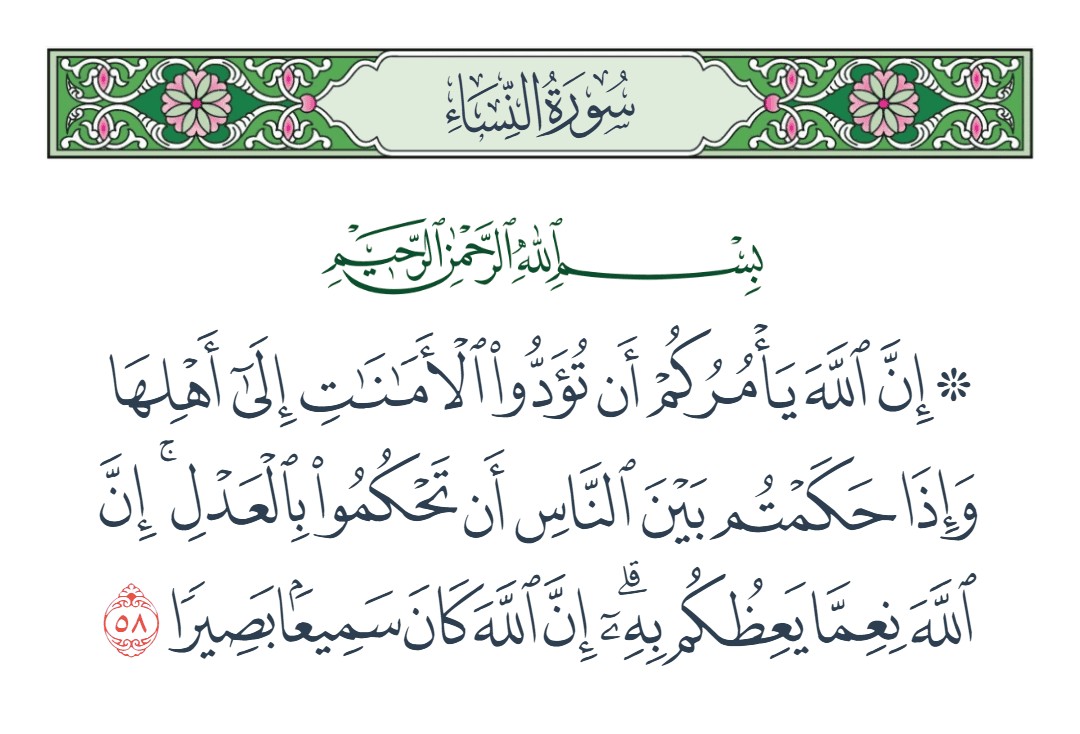 سُورَةُ النِّسَاءِ
بِسْمِ ٱللَّهِ ٱلرَّحْمَٰنِ ٱلرَّحِيمِ
۞ إِنَّ ٱللَّهَ يَأْمُرُكُمْ أَن تُؤَدُّوا۟ ٱلْأَمَـٰنَـٰتِ إِلَىٰٓ أَهْلِهَا
وَإِذَا حَكَمْتُم بَيْنَ ٱلنَّاسِ أَن تَحْكُمُوا۟ بِٱلْعَدْلِ ۚ إِنَّ
ٱللَّهَ نِعِمَّا يَعِظُكُم بِهِۦٓ ۗ إِنَّ ٱللَّهَ كَانَ سَمِيعًۢا بَصِيرًا ٥٨